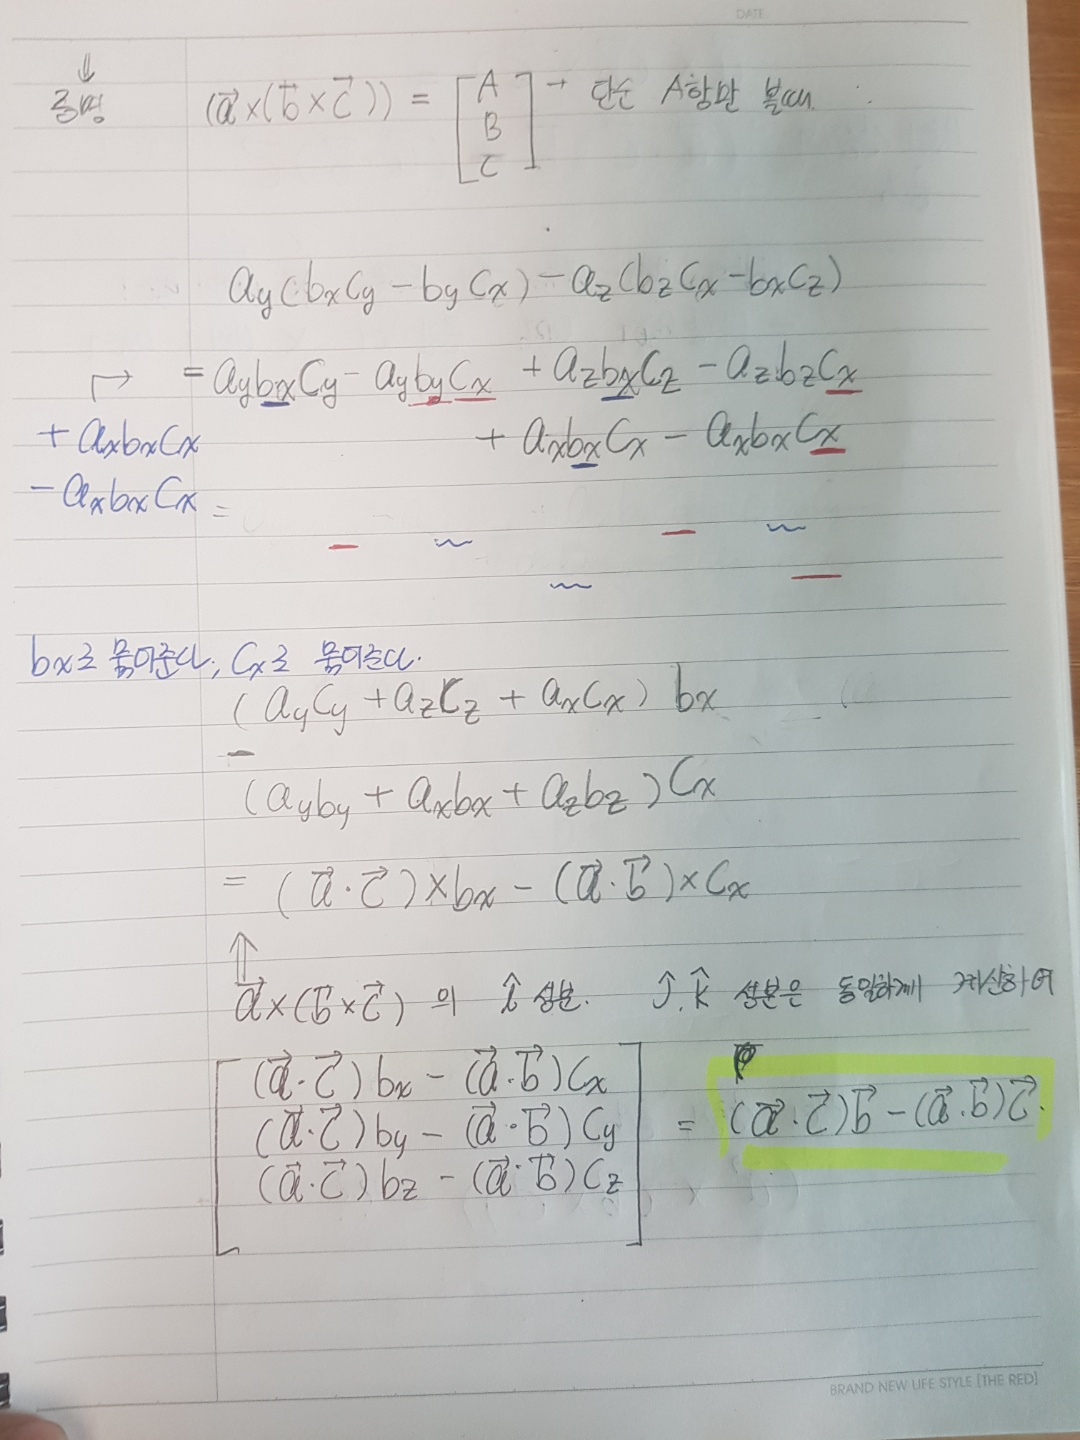 DATE
↓
증명
(a⃗×(b⃗×c⃗)) = [A B C] → 단순 A항만 볼때.
ay(bxCy - byCx) - az(bzCx - bxCz)
= aybxCy - aybyCx + azbxCz - azbzCx
+ axbxCx
+ axbxCx - axbxCx
- axbxCx
=
bx로 묶어준다, Cx로 묶어준다.
(ayCy + azCz + axCx) bx
-
(ayby + axbx + azbz) Cx
= (a⃗·c⃗)×bx - (a⃗·b⃗)×Cx
⇑
a⃗×(b⃗×c⃗) 의 î 성분. ĵ, k̂ 성분은 동일하게 계산하여
(a⃗·c⃗)bx - (a⃗·b⃗)Cx
(a⃗·c⃗)by - (a⃗·b⃗)Cy = (a⃗·c⃗)b⃗ - (a⃗·b⃗)c⃗.
(a⃗·c⃗)bz - (a⃗·b⃗)Cz
BRAND NEW LIFE STYLE [THE RED]